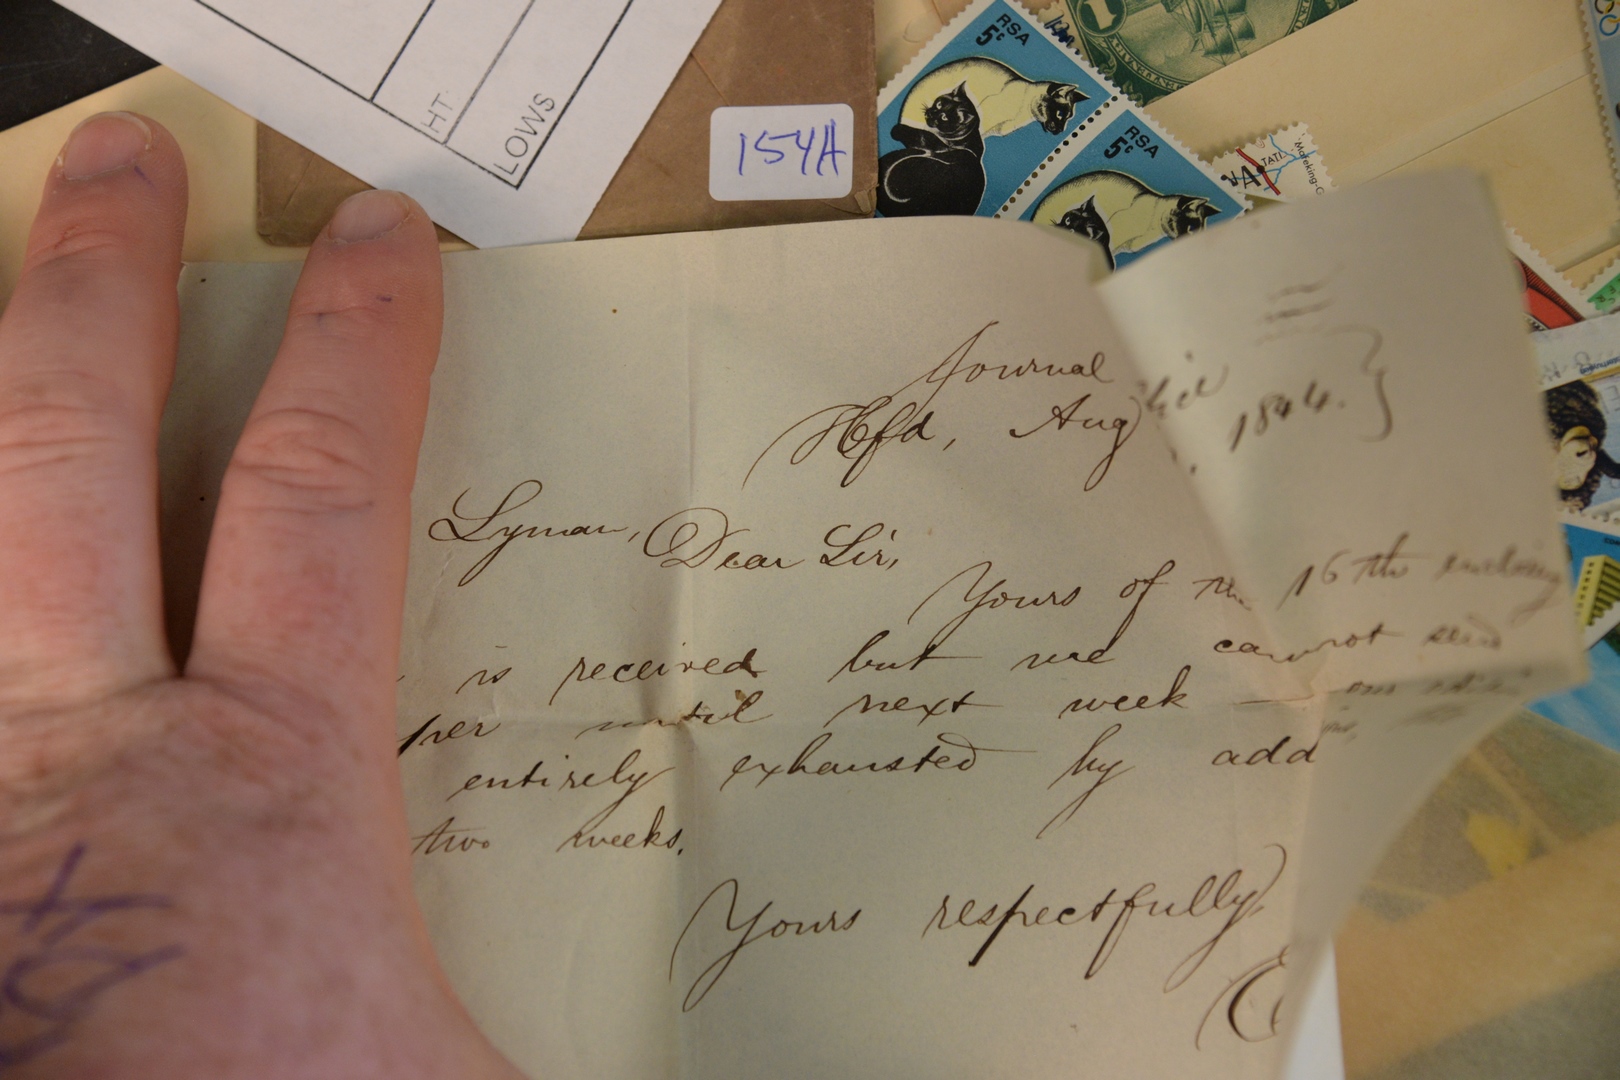 HT
LOWS
154A
RSA
5c
RSA
5c
1
TATI
Mafeking-
Journal
Hfd, Aug
, 1844.
Lyman, Dear Sir,
Yours of the 16th enclosing
is received but we cannot send
per until next week —
entirely exhausted by add
two weeks.
Yours respectfully,